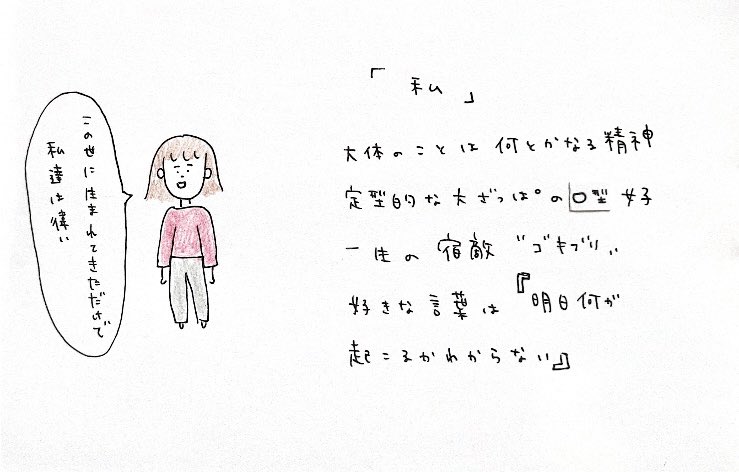 「私」
大体のことは何とかなる精神
定型的な大ざっぱ。のO型女子
一生の宿敵"ゴキブリ"
好きな言葉は『明日何が
起こるかわからない』
この世に生まれてきただけで
私達は偉い